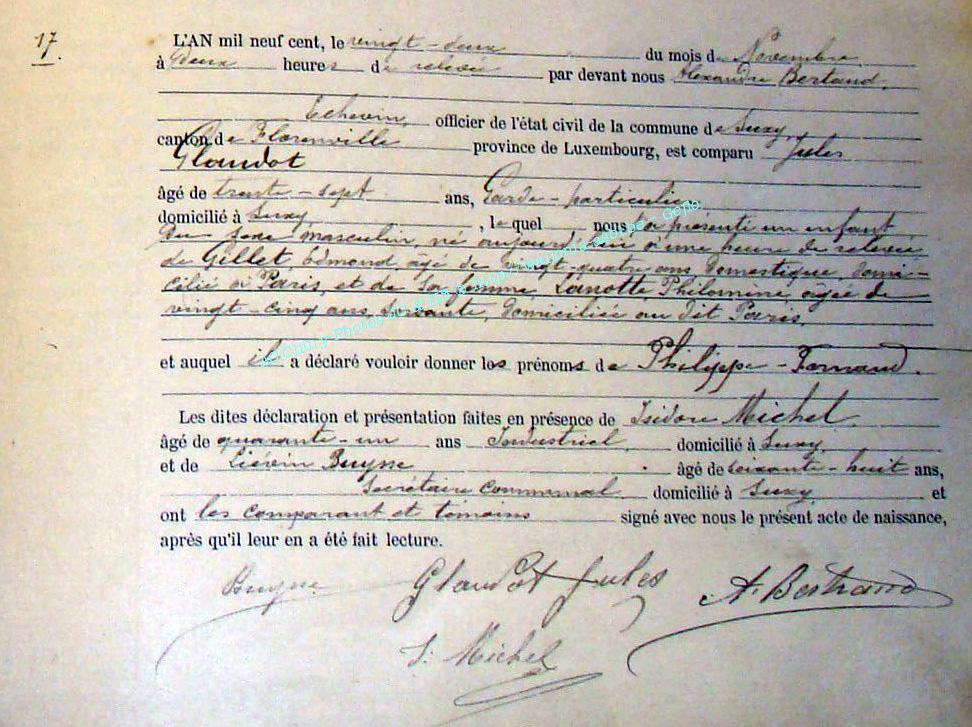 17.
L'AN mil neuf cent, le vingt-deux du mois de Novembre
à Deux heures de relevée par devant nous Alexandre Bertrand,
Echevin, officier de l'état civil de la commune de Suxy,
canton de Florenville province de Luxembourg, est comparu Jules
Glaudot
âgé de trente-sept ans, Garde-particulier
domicilié à Suxy , lequel nous a présenté un enfant
du sexe masculin, né aujourd'hui à une heure de relevée,
de Gillet Edmond, agé de vingt-quatre ans, domestique, domi-
cilié à Paris, et de sa femme, Lanotte Philomine, agée de
vingt-cinq ans, servante, domiciliée au dit Paris,
et auquel il a déclaré vouloir donner les prénoms de Philippe-Fernand.
Les dites déclaration et présentation faites en présence de Isidore Michel,
âgé de quarante-un ans Industriel, domicilié à Suxy,
et de Liévin Buyse âgé de soixante-huit ans,
Secrétaire communal domicilié à Suxy, et
ont les comparant et témoins signé avec nous le présent acte de naissance,
après qu'il leur en a été fait lecture.
Buyse Glaudot Jules A. Bertrand
I. Michel